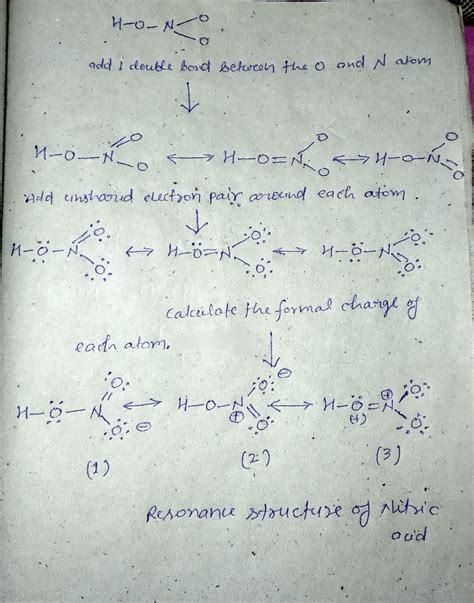 H-O-N
O
O
add 1 double bond between the O and N atom
H-O-N O O ⟷ H-O=N O O ⟷ H-O-N O O
Add unshared electron pair around each atom.
H-Ö-N O O ⟷ H-Ö=N O O ⟷ H-Ö-N O O
calculate the formal charge of
each atom.
H-Ö-N O O ⊖ ⟷ H-O-N ⊕ O ⊖ O ⟷ H-Ö=N ⊕ (+) O O
(1) (2) (3)
Resonance structure of Nitric
acid